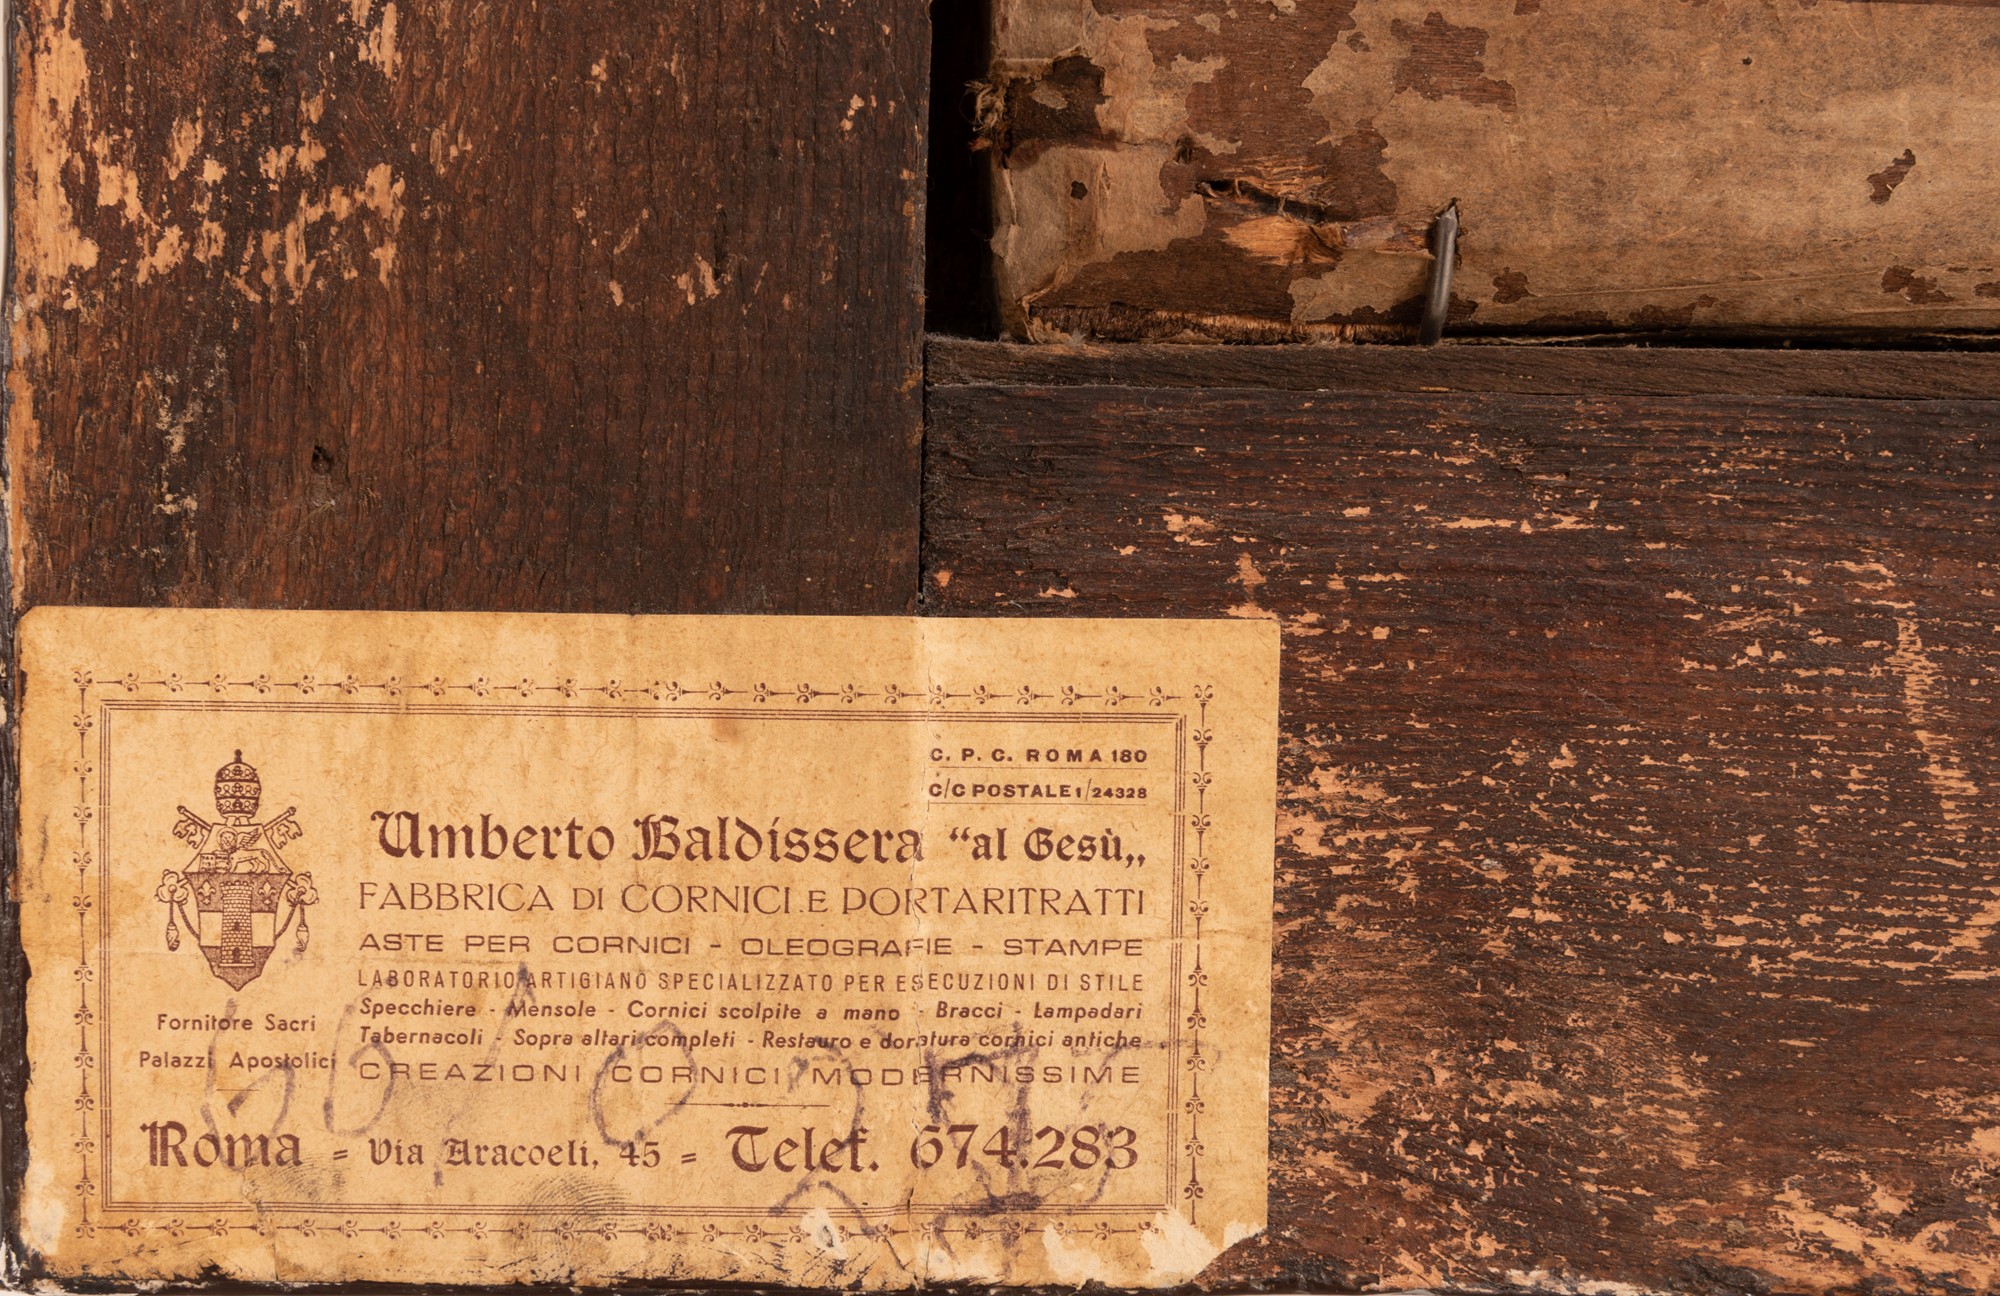 C. P. C. ROMA 180
C/C POSTALE 1/24328
Umberto Baldissera “al Gesù„
FABBRICA DI CORNICI E PORTARITRATTI
ASTE PER CORNICI - OLEOGRAFIE - STAMPE
LABORATORIO ARTIGIANO SPECIALIZZATO PER ESECUZIONI DI STILE
Specchiere - Mensole - Cornici scolpite a mano - Bracci - Lampadari
Tabernacoli - Sopra altari completi - Restauro e doratura cornici antiche
CREAZIONI CORNICI MODERNISSIME
Fornitore Sacri
Palazzi Apostolici
Roma = Via Aracoeli, 45 = Telef. 674.283